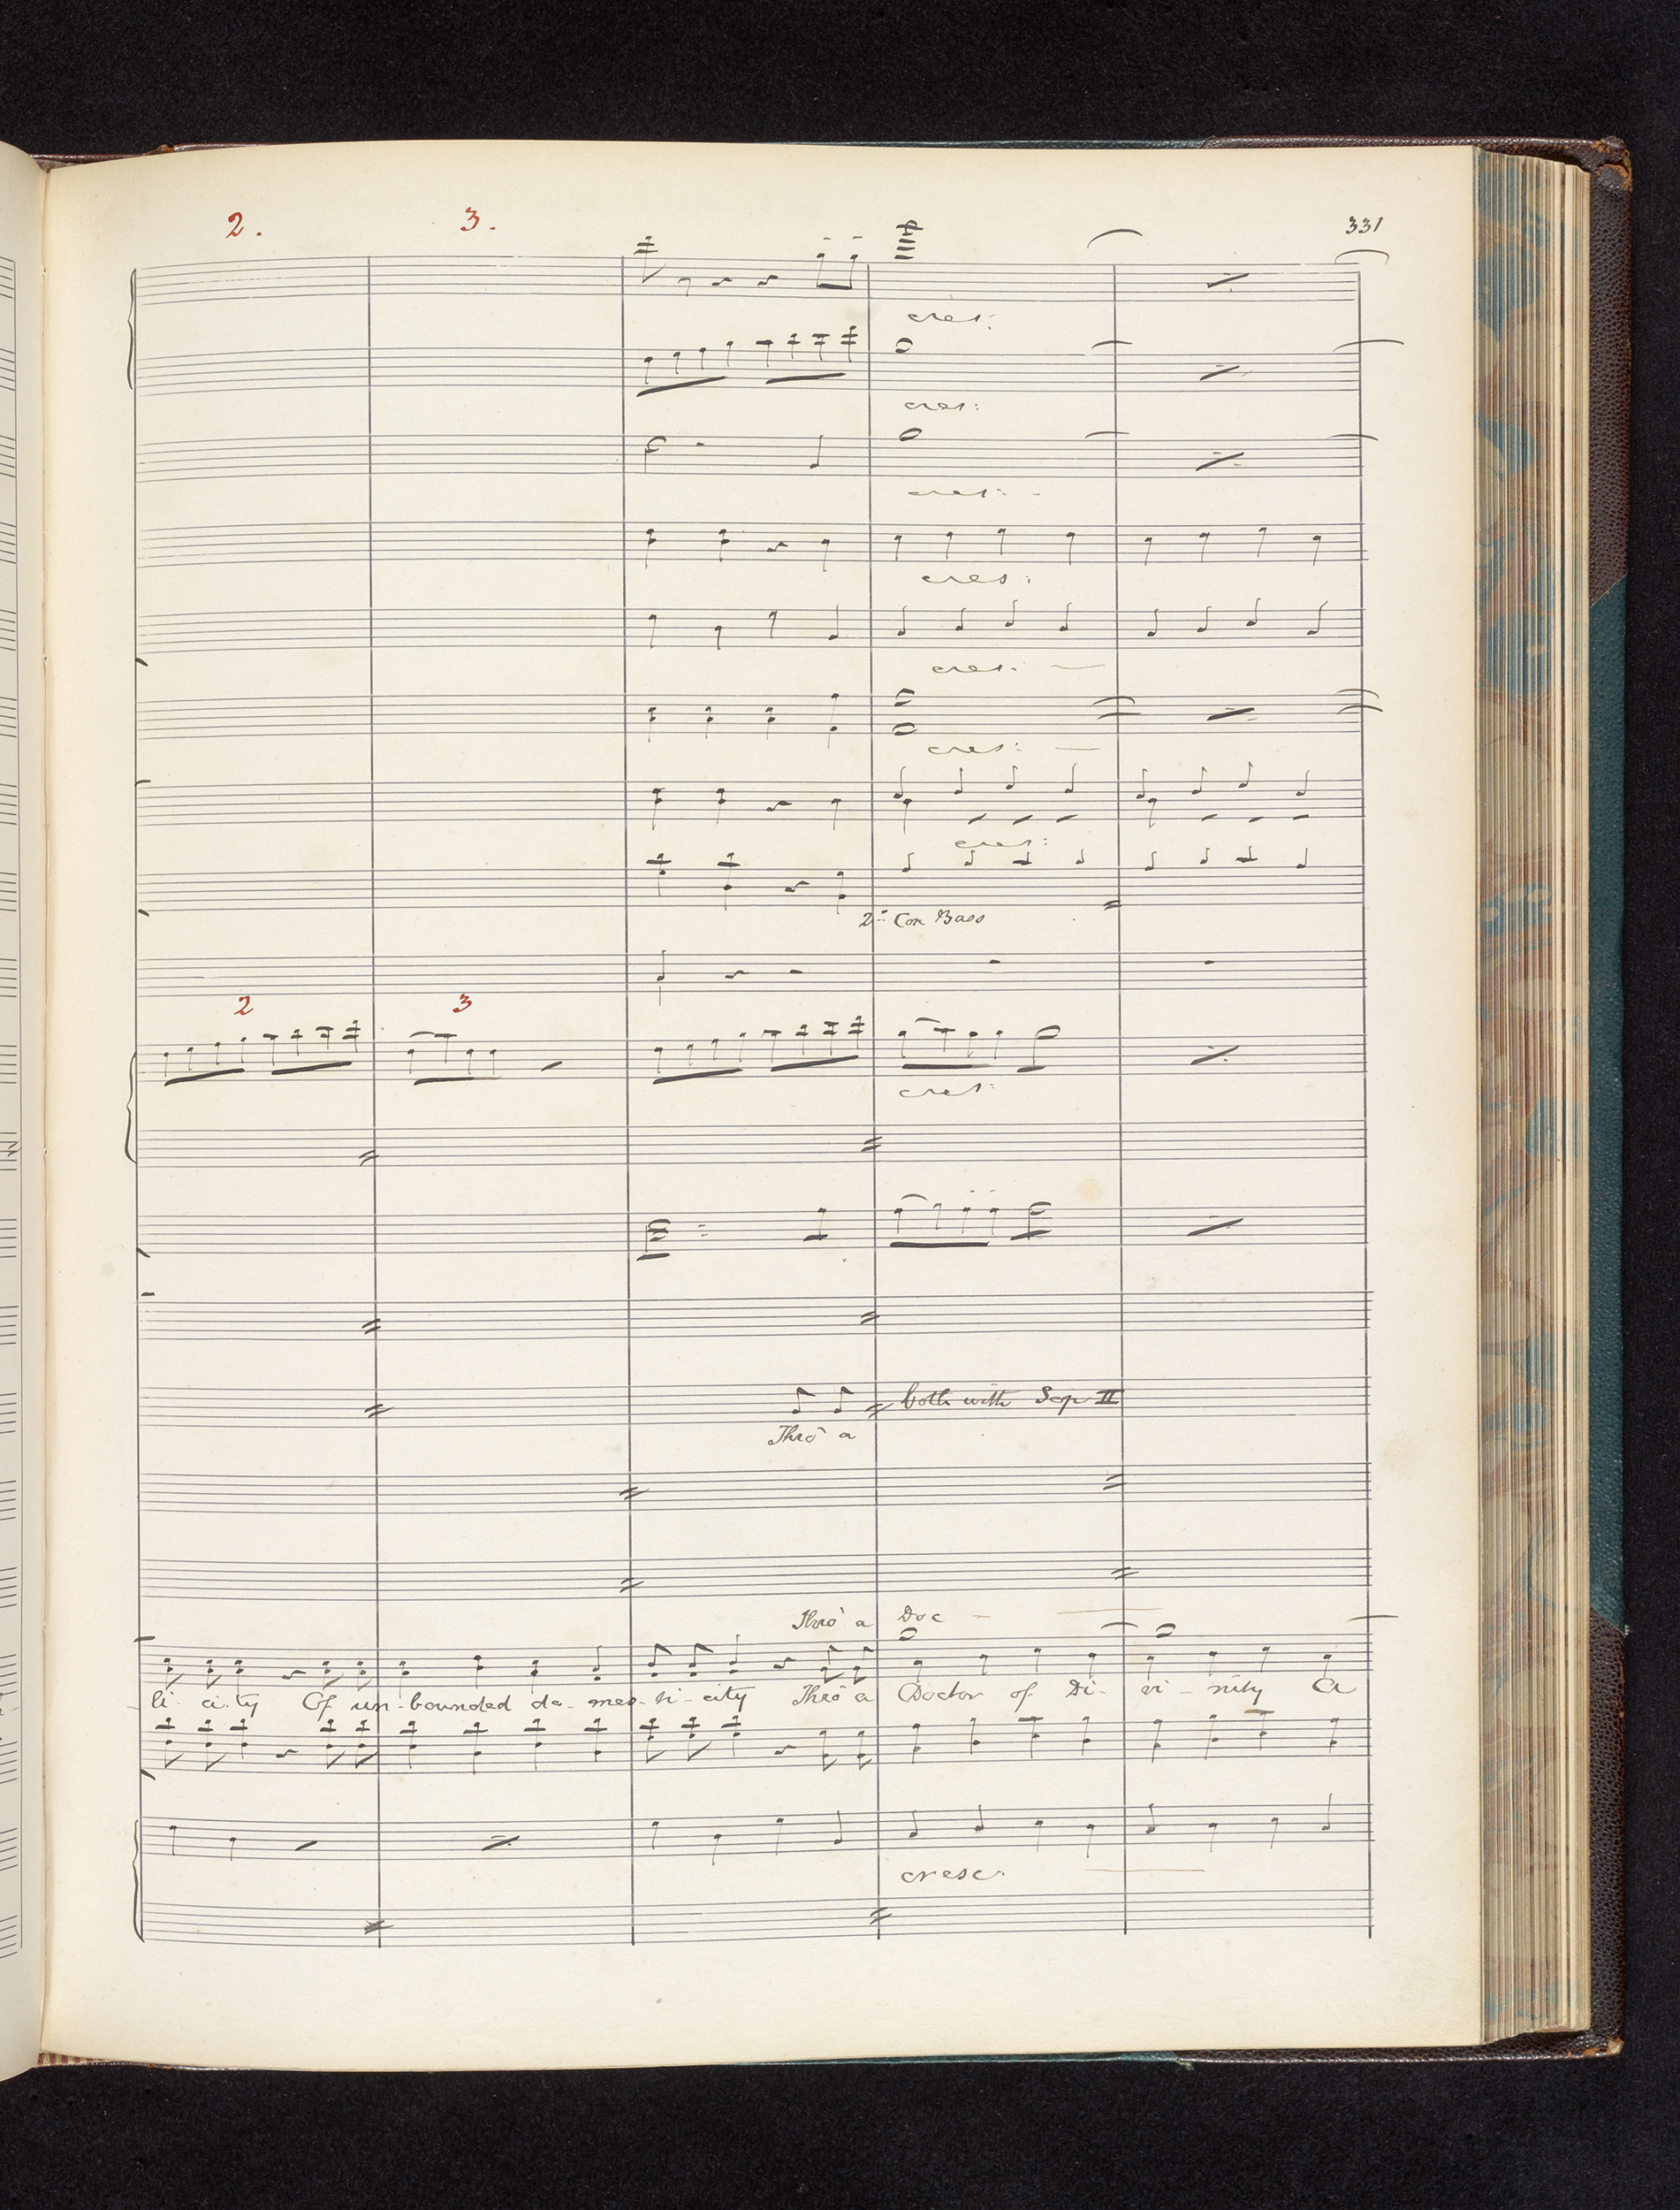 2. 3. 331
cres:
cres:
cres: -
cres:
cres: —
cres: —
cres:
2º Con Bass
2 3
cres:
both with Sop II
Thro' a
Thro' a Doc -
li - ci - ty Of un - bounded do - mes - ti - city Thro' a Doctor of Di - vi - nity A
cresc.